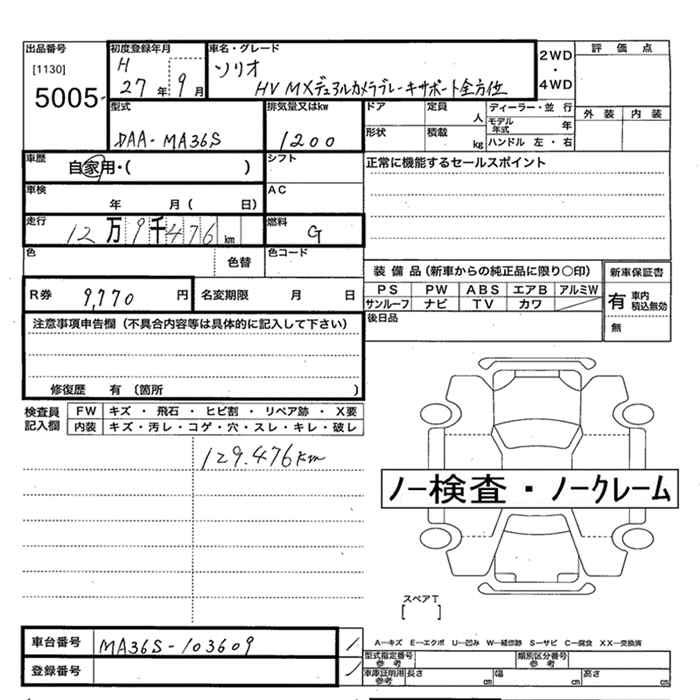 出品番号 初度登録年月 車名・グレード 2WD・4WD 評価点
[1130] H 27年 9月 ソリオ
5005- HV MXデュアルカメラブレーキサポート全方位
外装 内装
型式 排気量又はkw ドア 定員 人 ディーラー・並行
DAA-MA36S 1200 モデル年式 年
形状 積載 kg ハンドル 左・右
車歴 自家用・( ) シフト 正常に機能するセールスポイント
車検 年 月( 日) AC
走行 12万9千476km 燃料 G
色 色替 色コード
装備品(新車からの純正品に限り○印) 新車保証書
R券 9,770円 名変期限 月 日 PS PW ABS エアB アルミW 有 車内積込無効
サンルーフ ナビ TV カワ 無
注意事項申告欄(不具合内容等は具体的に記入して下さい) 後日品
修復歴 有 (箇所 )
検査員記入欄 FW キズ・飛石・ヒビ割・リペア跡・X要
内装 キズ・汚レ・コゲ・穴・スレ・キレ・破レ
129.476km
ノー検査・ノークレーム
スペアT
[ ]
車台番号 MA36S-103609 A―キズ E―エクボ U―凹み W―補修跡 S―サビ C―腐食 XX―交換済
型式指定番号 参考 類別区分番号 参考
登録番号 車庫証明用 参考 長さ cm 幅 cm 高さ cm